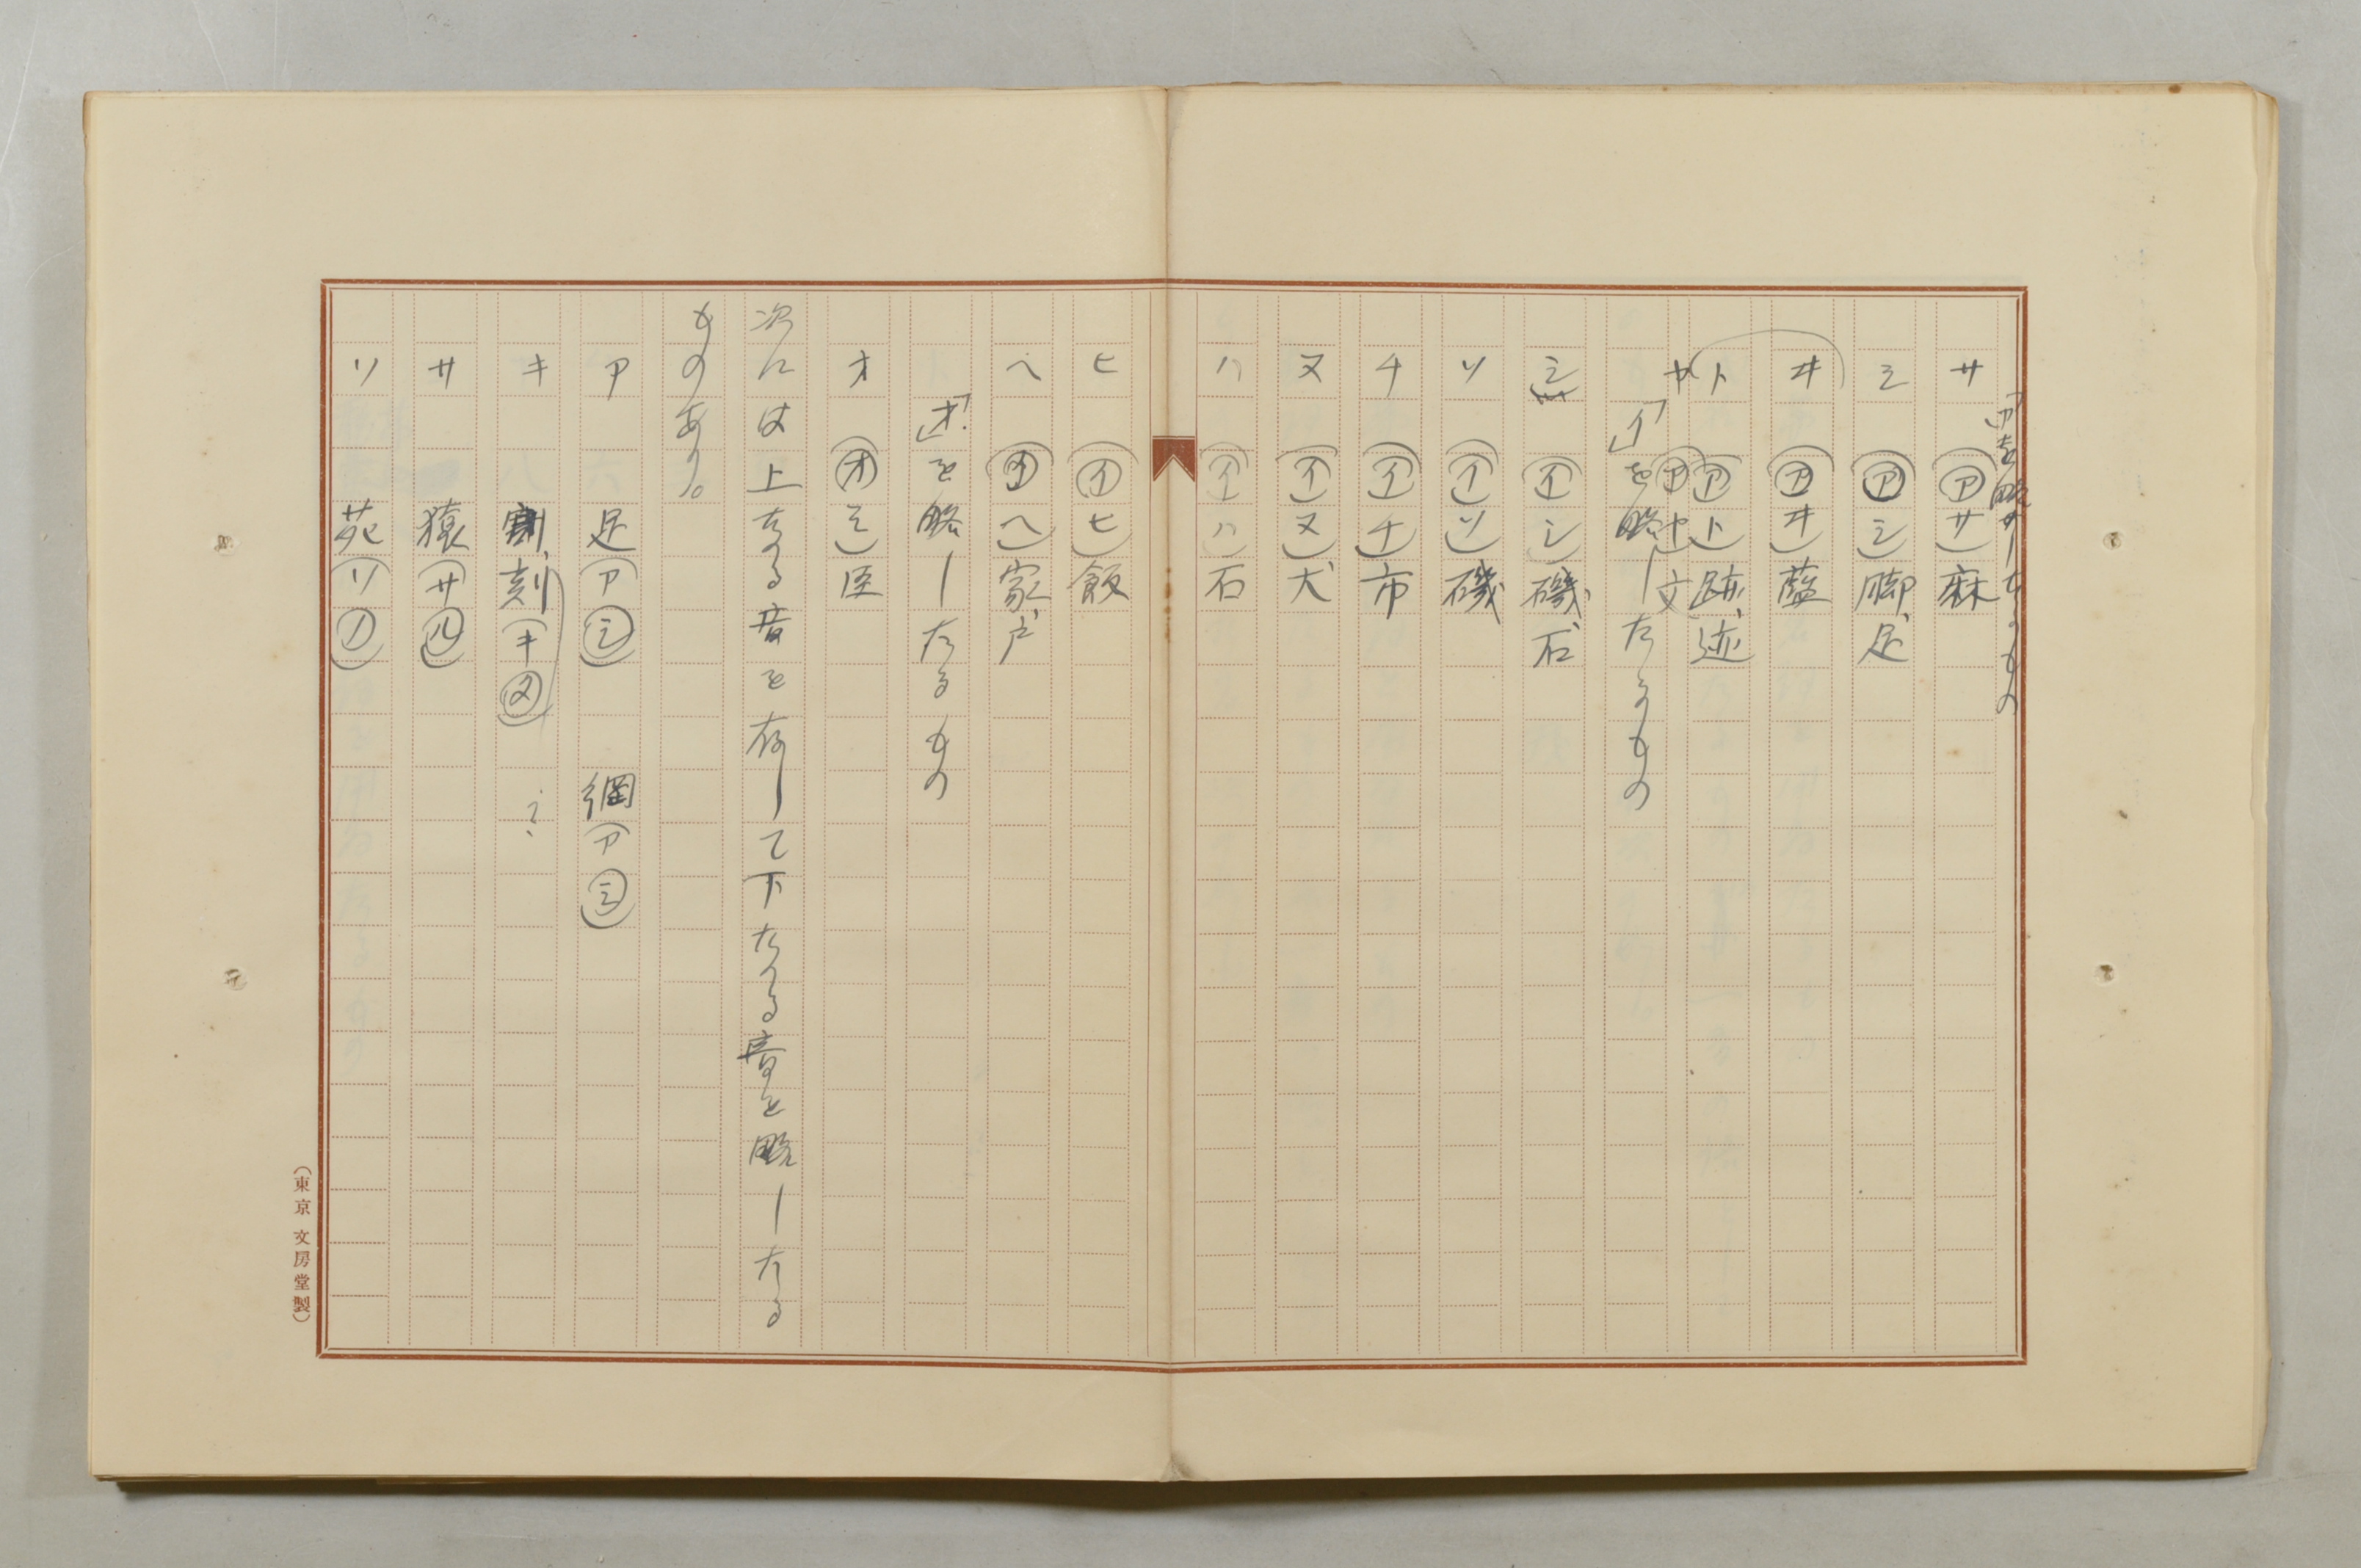 「ア」を略したるもの
サ (アサ)麻
シ (アシ)脚、足
ヰ (アヰ)藍
ト (アト)跡、迹
ヤ (アヤ)文
「イ」を略したるもの
シ (イシ)磯、石
ソ (イソ)磯
チ (イチ)市
ヌ (イヌ)犬
ハ (イハ)石
ヒ (イヒ)飯
ヘ (イヘ)家、戸
「オ」を略したるもの
オ (オミ)臣
次には上なる音を存して下なる音を略したる
ものあり。
ア 足(アシ) 網(アミ)
キ 刻(キダ) ?
サ 猿(サル)
ソ 苑(ソノ)
(東京 文房堂製)